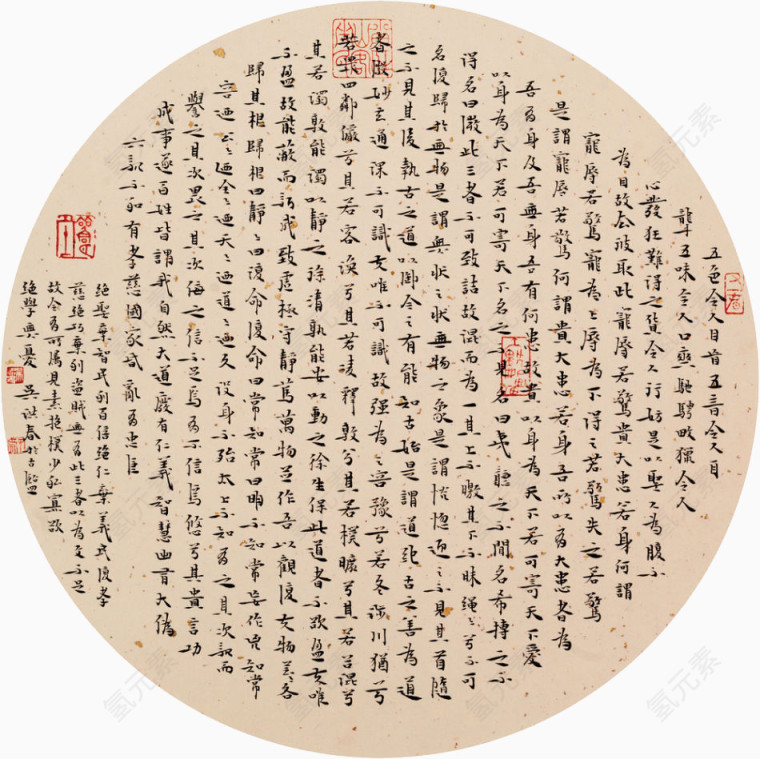 五色令人目盲五音令人耳
聾五味令人口爽馳騁畋獵令人
心發狂難得之貨令人行妨是以聖人為腹不
為目故去彼取此寵辱若驚貴大患若身何謂
寵辱若驚寵為上辱為下得之若驚失之若驚
是謂寵辱若驚何謂貴大患若身吾所以有大患者為
吾有身及吾無身吾有何患故貴以身為天下若可寄天下愛
以身為天下若可寄天下名之不見名曰夷聽之不聞名希搏之不
得名曰微此三者不可致詰故混而為一其上不皦其下不昧繩々兮不可
名復歸於無物是謂無狀之狀無物之象是謂惚恍迎之不見其首隨
之不見其後執古之道以御今之有能知古始是謂道紀古之善為道
者微妙玄通深不可識夫唯不可識故强為之容豫兮若冬涉川猶兮
若畏四鄰儼兮其若客渙兮其若凌釋敦兮其若樸曠兮其若谷混兮
其若濁孰能濁以靜之徐清孰能安以動之徐生保此道者不欲盈夫唯
不盈故能蔽而新成致虛極守靜篤萬物並作吾以觀復夫物芸々各
歸其根歸根曰靜々曰復命復命曰常知常曰明不知常妄作凶知常
容迺公々迺全々迺天々迺道々迺久沒身不殆太上不知有之其次親而
譽之其次畏之其次侮之信不足焉有不信焉悠兮其貴言功
成事遂百姓皆謂我自然大道廢有仁義智慧出有大偽
六親不和有孝慈國家昏亂有忠臣
絕聖棄智民利百倍絕仁棄義民復孝
慈絕巧棄利盜賊無有此三者以為文不足
故令有所屬見素抱樸少私寡欲
絕學無憂 吳洪春於古
氢元素